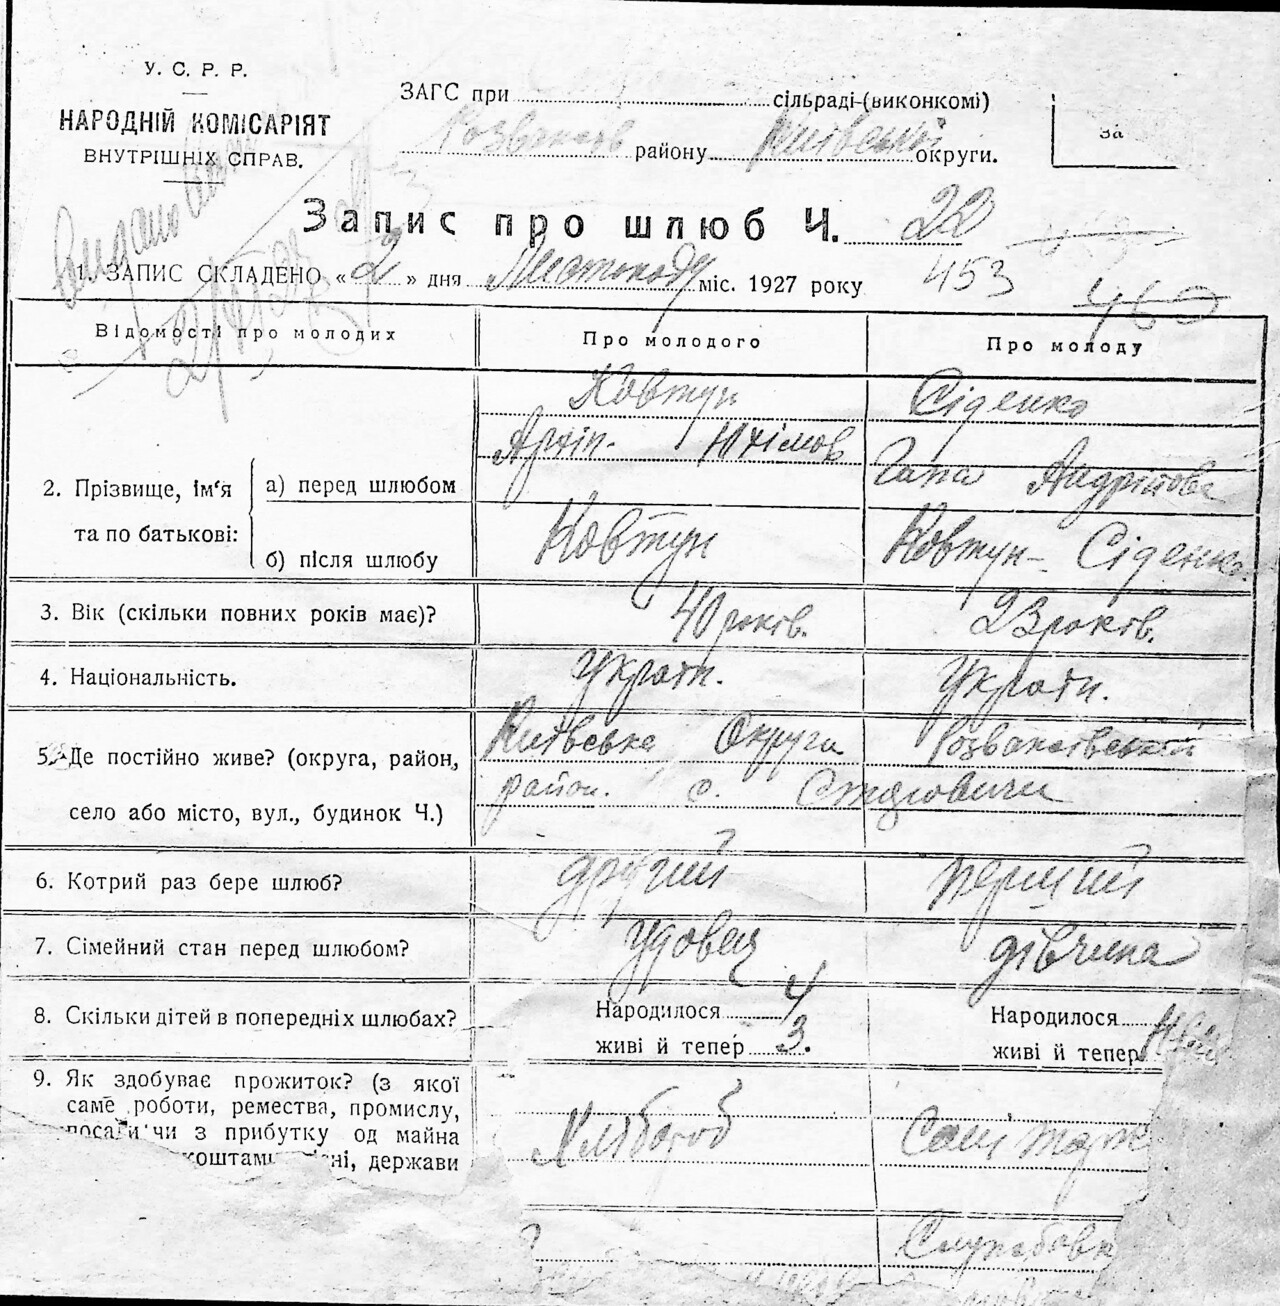 У. С. Р. Р.
НАРОДНІЙ КОМІСАРІЯТ
ВНУТРІШНІХ СПРАВ.
ЗАГС при сільраді-(виконкомі)
Розважів району Київської округи.
За
Видано
Запис про шлюб Ч. 22
453
460
1. ЗАПИС СКЛАДЕНО «2» дня Листопаду міс. 1927 року
Відомості про молодих Про молодого Про молоду
Ковтун Сіденко
Архіп. Юхімов Гана Андріїова
2. Прізвище, ім‘я та по батькові:
а) перед шлюбом
б) після шлюбу Ковтун Ковтун-Сіденко
3. Вік (скільки повних років має)? 40 років. 23 років.
4. Національність. Україн. Україн.
5. Де постійно живе? (округа, район, Київська Округа Розважівський
село або місто, вул., будинок Ч.) район. с.
6. Котрий раз бере шлюб? другий перший
7. Сімейний стан перед шлюбом? удовец дівчина
8. Скільки дітей в попередніх шлюбах? Народилося 4 Народилося
живі й тепер 3. живі й тепер
9. Як здобуває прожиток? (з якої
саме роботи, ремества, промислу,
посади чи з прибутку од майна
коштами ні, держави
Хлібороб